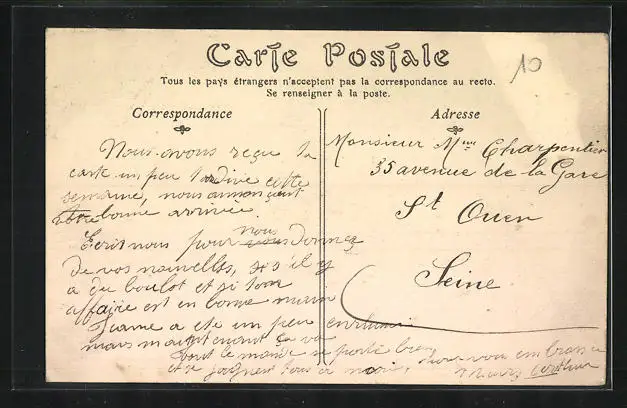 Carte Postale
Tous les pays étrangers n'acceptent pas la correspondance au recto.
Se renseigner à la poste.
10
Correspondance
Nous avons reçu ta
carte un peu tardive cette
semaine, nous annonçant
votre bonne arrivée.
Ecris nous pour nous donnez
de vos nouvelles, si s'il y
a du boulot et si ton
affaire est en bonne main
Jeanne a été un peu enrhumé
mais maintenant ça va
tout le monde se porte bien
et se joignent tous à moi, pour vous embrasser
Adresse
Monsieur Mme Charpentier
35 avenue de la Gare
St Ouen
Seine